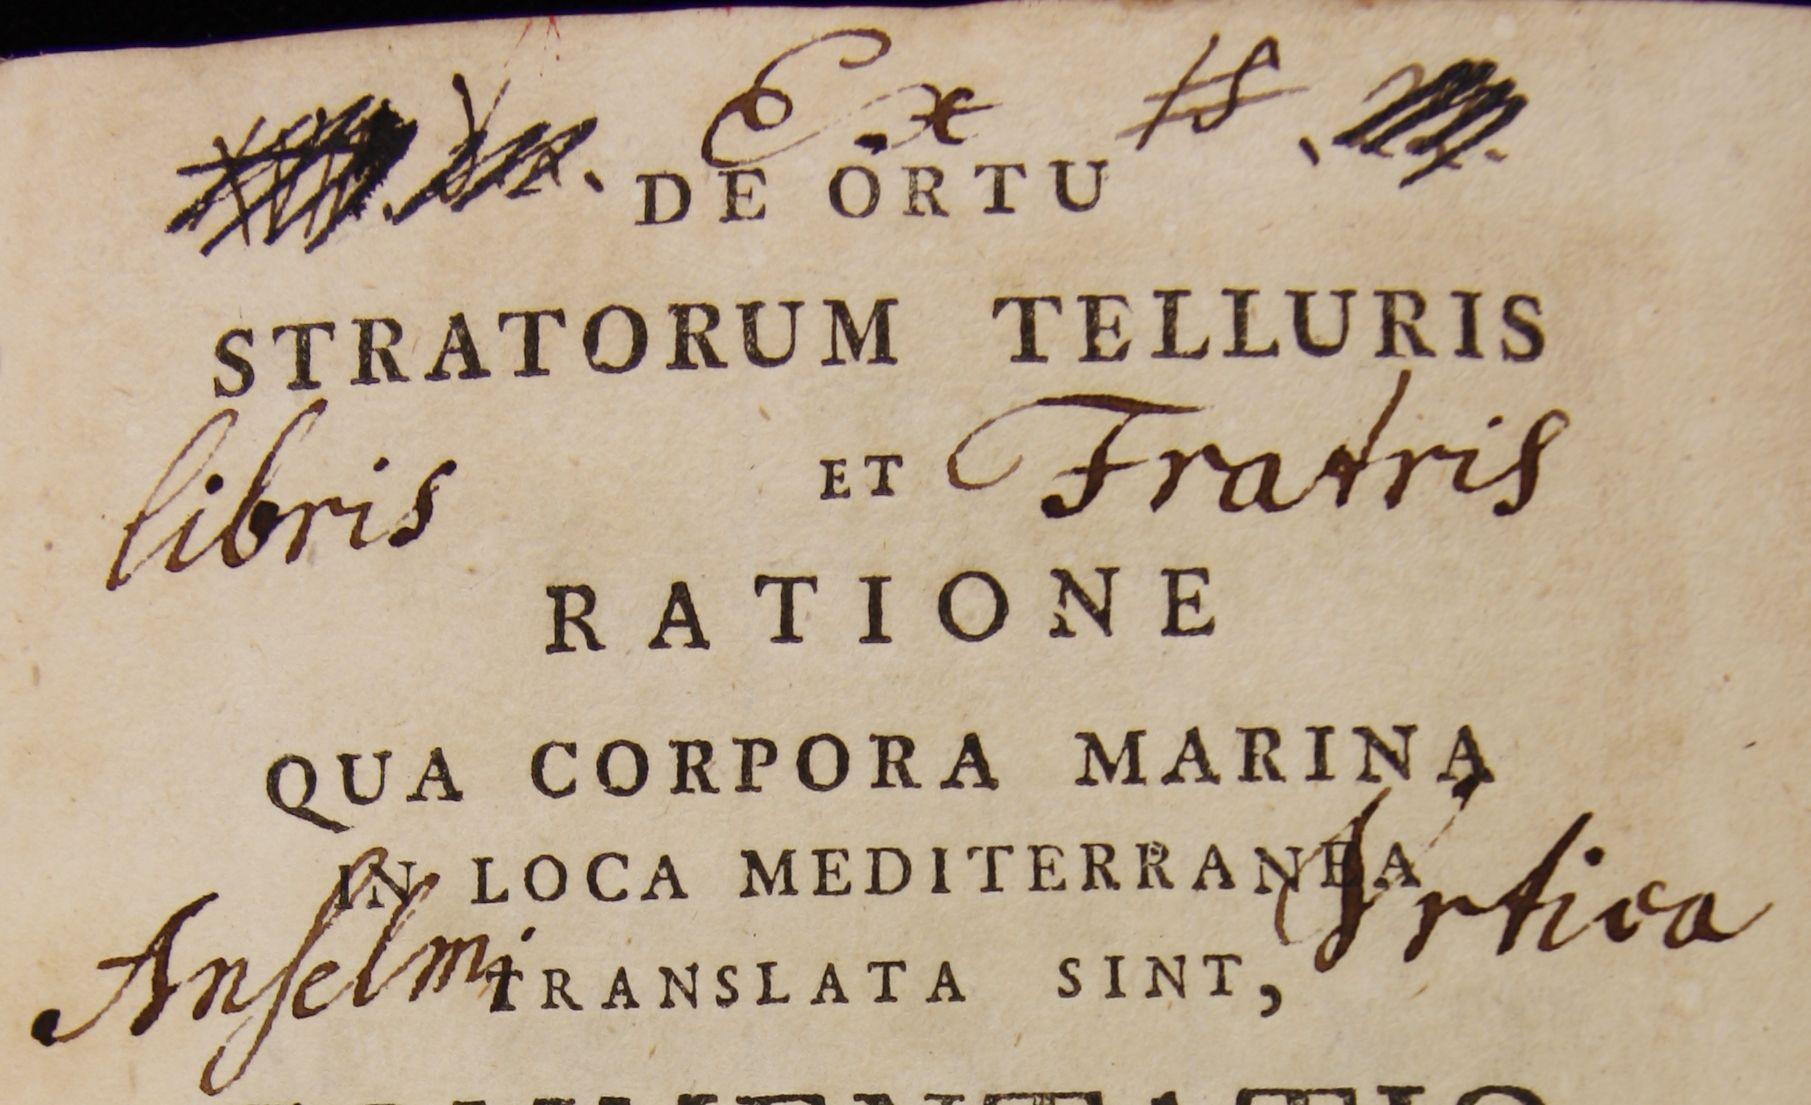 Ex
DE ORTU
STRATORUM TELLURIS
libris ET Fratris
RATIONE
QUA CORPORA MARINA
IN LOCA MEDITERRANEA
Anselmi
TRANSLATA SINT,